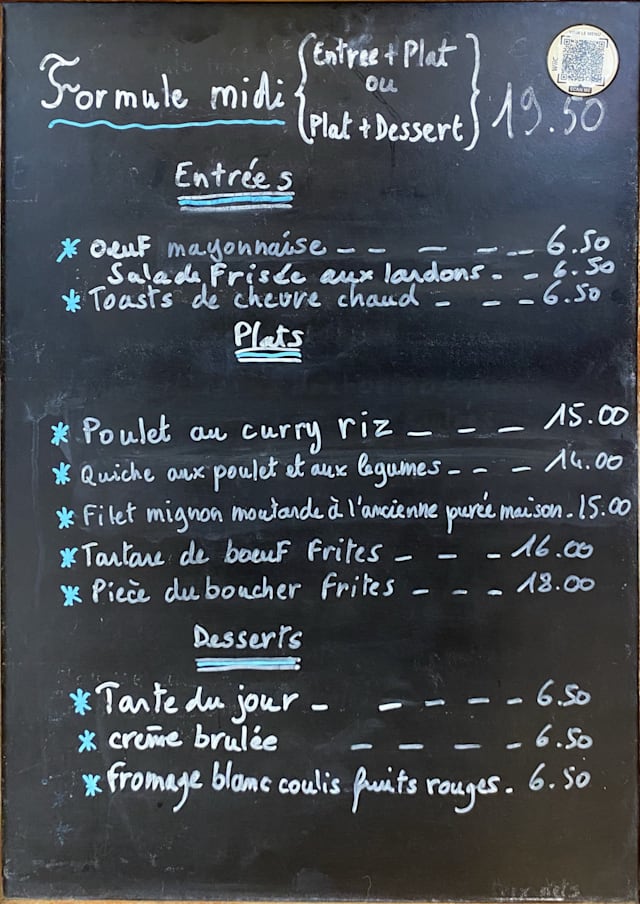 Formule midi { Entree + Plat
ou
Plat + Dessert } 19.50
VOIR LE MENU
SCAN ME
Entrées
* oeuf mayonnaise - - - - - 6.50
Salade Frisée aux lardons - - 6.50
* Toasts de chevre chaud - - - 6.50
Plats
* Poulet au curry riz - - - 15.00
* Quiche aux poulet et aux legumes - - - 14.00
* Filet mignon moutarde à l'ancienne purée maison - 15.00
* Tartare de boeuf frites - - - 16.00
* Pièce du boucher frites - - - 18.00
Desserts
* Tarte du jour - - - - - 6.50
* creme brulée - - - - 6.50
* fromage blanc coulis fruits rouges - 6.50